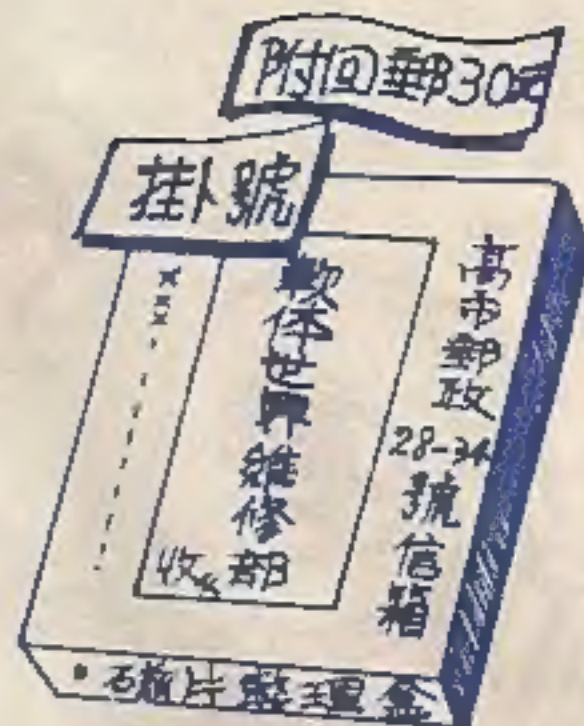 附回郵30元
掛號
高市郵政
28-34
號信箱
軟体世界維修部
收
磁片整理盒